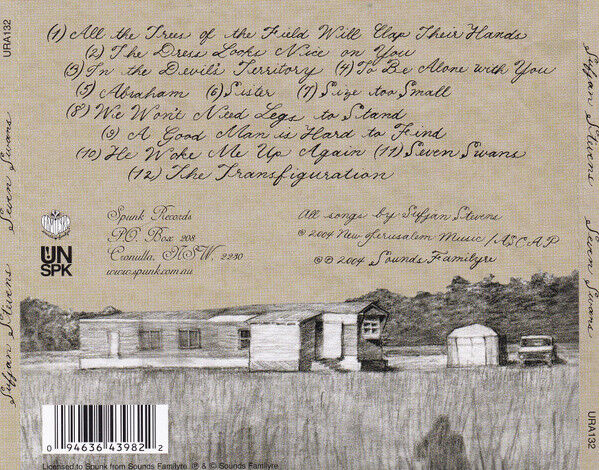 (1) All the Trees of the Field Will Clap Their Hands
(2) The Dress Looks Nice on You
(3) In the Devil's Territory (4) To Be Alone with You
(5) Abraham (6) Sister (7) Size too Small
(8) We Won't Need Legs to Stand
(9) A Good Man is Hard to Find
(10) He Woke Me Up Again (11) Seven Swans
(12) The Transfiguration
Spunk Records
P.O. Box 208
Cronulla, NSW, 2230
www.spunk.com.au
All songs by Sufjan Stevens
© 2004 New Jerusalem Music / ASCAP
℗ © 2004 Sounds Familyre
UN
SPK
0 94636 43982 2
Licensed to Spunk from Sounds Familyre. ℗ & © Sounds Familyre
Sufjan Stevens Seven Swans URA132
Sufjan Stevens Seven Swans URA132